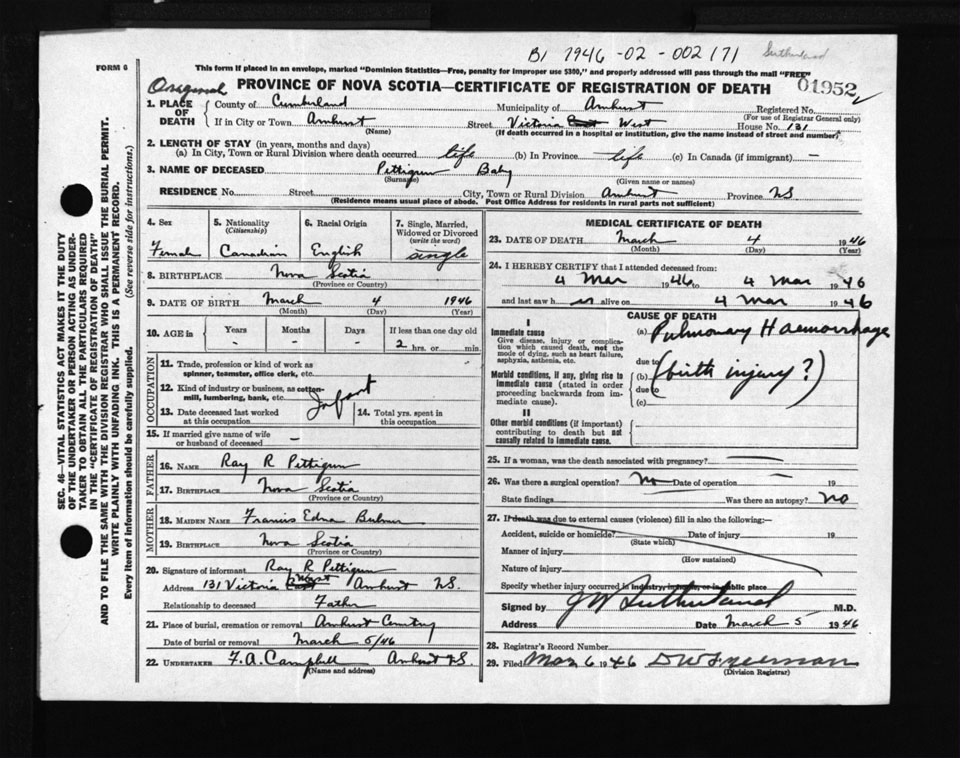 B1 1946-02-002171 Sutherland
FORM 6
This form if placed in an envelope, marked "Dominion Statistics—Free, penalty for improper use $300," and properly addressed will pass through the mail "FREE"
Original PROVINCE OF NOVA SCOTIA—CERTIFICATE OF REGISTRATION OF DEATH 01952
1. PLACE OF DEATH
County of Cumberland Municipality of Amherst Registered No.
(For use of Registrar General only)
If in City or Town Amherst Street Victoria East West House No. 131
(Name) (If death occurred in a hospital or institution, give the name instead of street and number)
2. LENGTH OF STAY (in years, months and days)
(a) In City, Town or Rural Division where death occurred life (b) In Province life (c) In Canada (if immigrant) —
3. NAME OF DECEASED Pettigrew Baby
(Surname) (Given name or names)
RESIDENCE No. Street City, Town or Rural Division Amherst Province NS
(Residence means usual place of abode. Post Office Address for residents in rural parts not sufficient)
4. Sex Female
5. Nationality (Citizenship) Canadian
6. Racial Origin English
7. Single, Married, Widowed or Divorced (write the word) single
8. BIRTHPLACE Nova Scotia
(Province or Country)
9. DATE OF BIRTH March 4 1946
(Month) (Day) (Year)
10. AGE in Years Months Days If less than one day old
- - - 2 hrs. or min.
OCCUPATION
11. Trade, profession or kind of work as spinner, teamster, office clerk, etc.
12. Kind of industry or business, as cotton-mill, lumbering, bank, etc. Infant
13. Date deceased last worked at this occupation
14. Total yrs. spent in this occupation
15. If married give name of wife or husband of deceased —
FATHER
16. NAME Ray R Pettigrew
17. BIRTHPLACE Nova Scotia
(Province or Country)
MOTHER
18. MAIDEN NAME Francis Edna Bulmer
19. BIRTHPLACE Nova Scotia
(Province or Country)
20. Signature of informant Ray R Pettigrew
Address 131 Victoria East West Amherst NS.
Relationship to deceased Father
21. Place of burial, cremation or removal Amherst Cemetery
Date of burial or removal March 5/46
22. UNDERTAKER F.A. Campbell Amherst NS.
(Name and address)
MEDICAL CERTIFICATE OF DEATH
23. DATE OF DEATH March 4 1946
(Month) (Day) (Year)
24. I HEREBY CERTIFY that I attended deceased from:
4 Mar 1946 to 4 Mar 1946
and last saw h er alive on 4 Mar 1946
CAUSE OF DEATH
I
Immediate cause (a) Pulmonary Haemorrhage
Give disease, injury or complication which caused death, not the mode of dying, such as heart failure, asphyxia, asthenia, etc.
due to
Morbid conditions, if any, giving rise to immediate cause (stated in order proceeding backwards from immediate cause).
(b) (birth injury?)
due to
(c)
II
Other morbid conditions (if important) contributing to death but not causally related to immediate cause.
25. If a woman, was the death associated with pregnancy?
26. Was there a surgical operation? No Date of operation 19
State findings Was there an autopsy? No
27. If death was due to external causes (violence) fill in also the following:—
Accident, suicide or homicide? Date of injury 19
(State which)
Manner of injury
(How sustained)
Nature of injury
Specify whether injury occurred in industry, in public place
Signed by J W Sutherland M.D.
Address Date March 5 1946
28. Registrar's Record Number
29. Filed Mar 6 1946
(Division Registrar)
SEC. 46—VITAL STATISTICS ACT MAKES IT THE DUTY
OF THE UNDERTAKER OR PERSON ACTING AS UNDER-
TAKER TO OBTAIN ALL THE PARTICULARS REQUIRED
IN THE "CERTIFICATE OF REGISTRATION OF DEATH"
AND TO FILE THE SAME WITH THE DIVISION REGISTRAR WHO SHALL ISSUE THE BURIAL PERMIT.
WRITE PLAINLY WITH UNFADING INK. THIS IS A PERMANENT RECORD.
Every item of information should be carefully supplied. (See reverse side for instructions.)